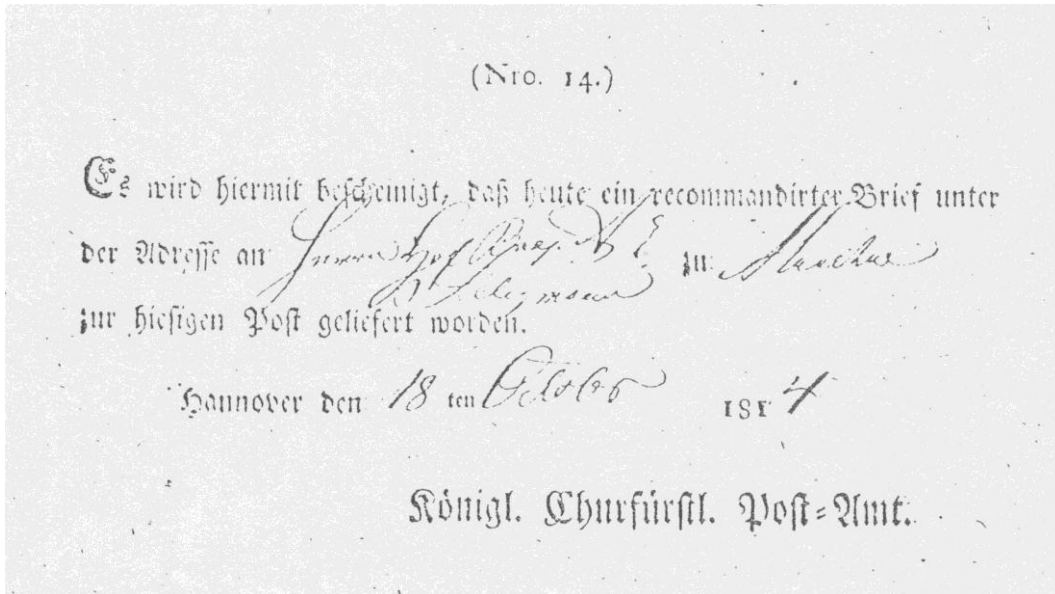 (Nro. 14.)
Es wird hiermit bescheinigt, daß heute ein recommandirter Brief unter
der Adresse an Herrn Hof zu
Seligmann
zur hiesigen Post geliefert worden.
Hannover den 18 ten October 1814
Königl. Churfürstl. Post-Amt.